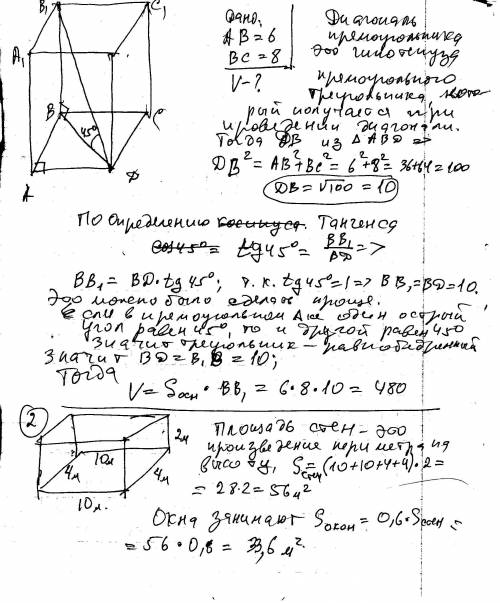 B₁ C₁
A₁
B
45°
A D
Дано:
AB=6
BC=8
V-?
Диагональ
прямоугольника
это гипотенуза
прямоугольного
треугольника кото
рый получается при
проведении диагонали.
Тогда DB из △ABD =>
DB²=AB²+BC²=6²+8²=36+64=100
DB=√100=10
По определению косинуса Тангенса
cos45°= tg45°= BB₁/BD =>
BB₁= BD·tg45°; т.к. tg45°=1=> BB₁=BD=10.
Это можно было сделать проще.
Если в прямоугольном △ке один острый
угол равен 45°, то и другой равен 45°
Значит треугольник – равнобедренный
Значит BD=B₁B=10;
Тогда
V=Sосн·BB₁=6·8·10=480
2
2м
10м
4м 4м
10м.
Площадь стен – это
произведение периметра на
высоту, Sстен=(10+10+4+4)·2=
=28·2=56м²
Окна занимают Sокон=0,6·Sстен=
=56·0,6=33,6м².